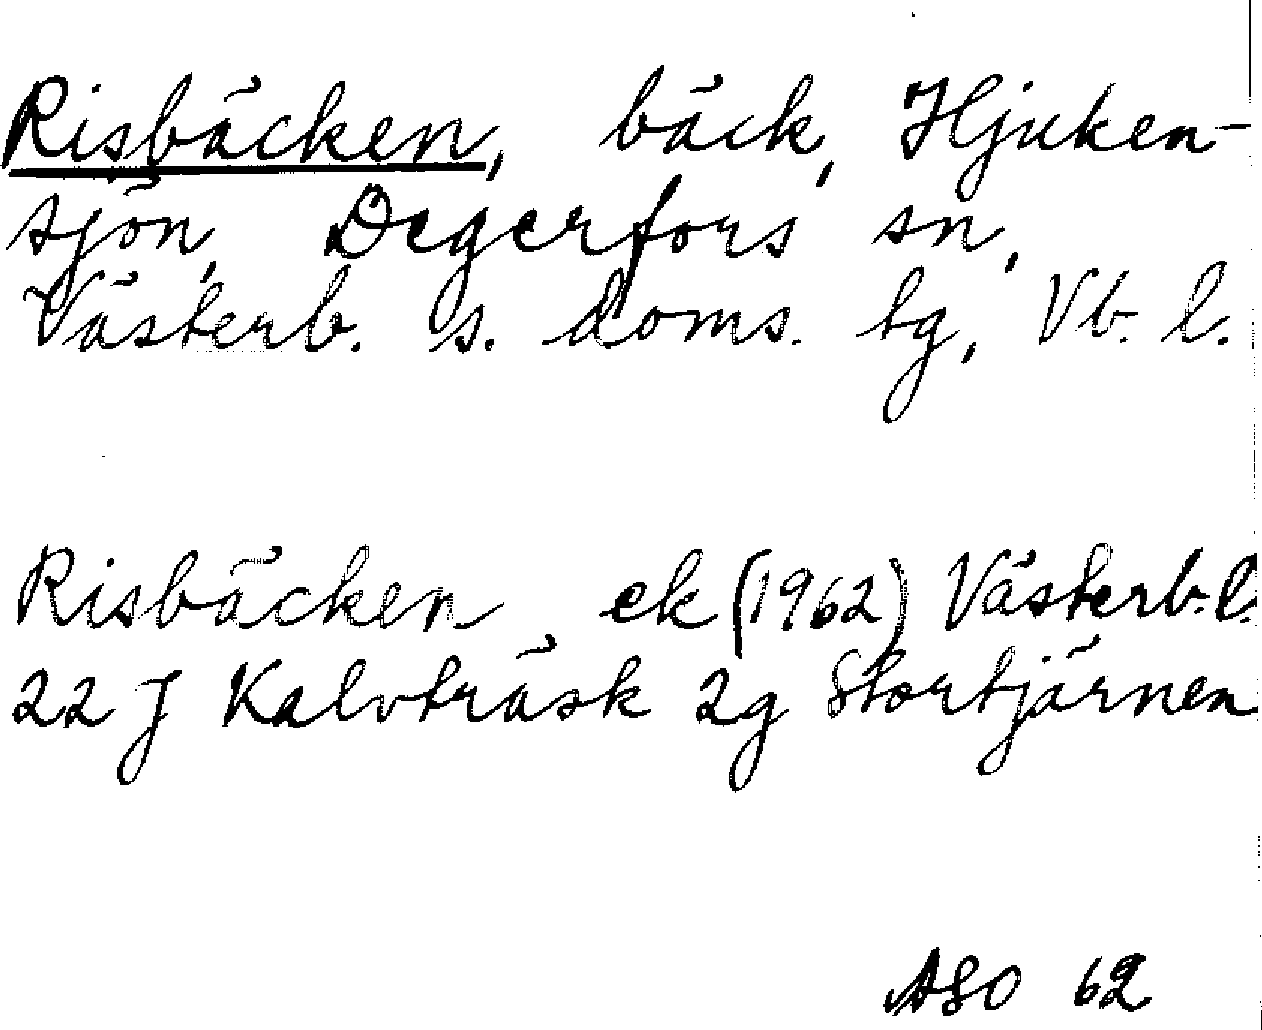 Risbäcken, bäck, Hjuken-
sjön, Degerfors sn,
Västerb. s. doms. tg, Vb. l.
Risbäcken ek (1962) Västerb. l.
22 J Kalvträsk 2g Stortjärnen
ASO 62